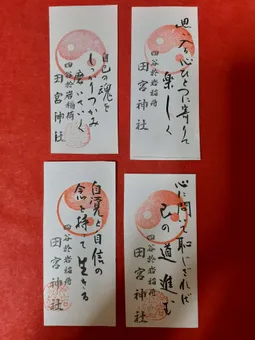 心ひとつに寄りて
楽しく
四谷於岩稲荷
田宮神社
自己の魂を
しっかりつかみ
磨いてく
四谷於岩稲荷
田宮神社
心に問て恥じざれば
己の道進む
四谷於岩稲荷
田宮神社
自覚と自信の
念を持って生きる
四谷於岩稲荷
田宮神社